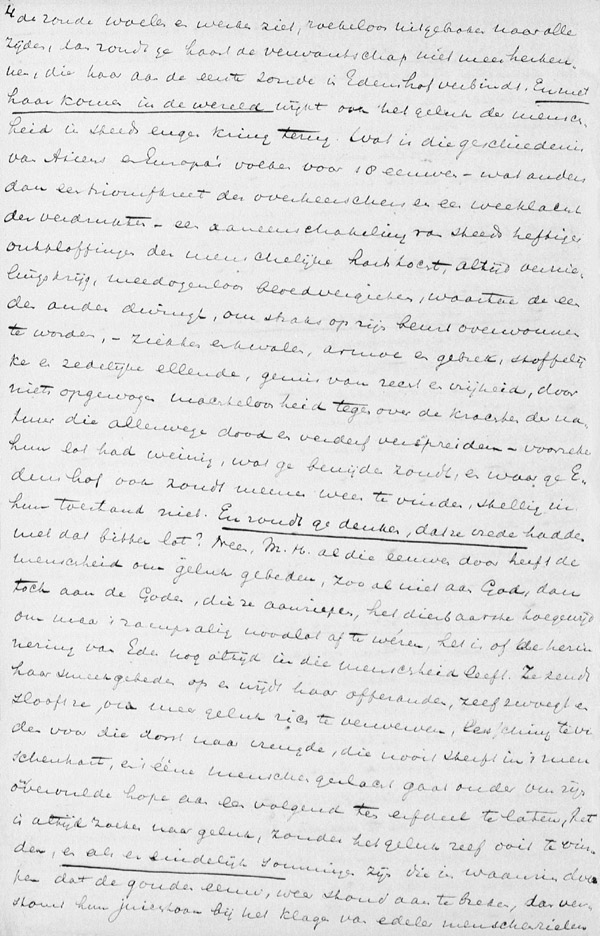 4 de zonde woelen en werken ziet, roekeloos uitgebroken naar alle
zijden, dan zoudt ge haast de verwantschap niet meer herken-
nen, die haar aan de eerste zonde in Edens hof verbindt. En met
haar komen in de wereld wijkt ook het geluk der mensch-
heid in steeds enger kring terug. Wat is die geschiedenis
van Aziens en Europa's volken voor 18 eeuwen - wat anders
dan een triomfkreet der overheerschers en een weeklacht
der verdrukten - een aaneenschakeling van steeds heftiger
ontploffingen der menschelijke hartstocht, altijd vernie-
lingskrijg, meedogenloos bloedvergieten, waartoe de een
den ander dwingt, om straks op zijn beurt overwonnen
te worden, - ziekten en kwalen, armoe en gebrek, stoffelij-
ke en zedelijke ellende, gemis van recht en vrijheid, door
niets opgewogen machteloosheid tegenover de krachten der na-
tuur die allerwege dood en verderf verspreiden - voorzeker
hun lot had weinig, wat ge benijden zoudt, en waar ge E-
dens hof ook zoudt meenen weer te vinden, stellig in
hun toestand niet. En zoudt ge denken, dat ze vrede hadden
met dat bitter lot? Neen, M. H. al die eeuwen door heeft de
menschheid om geluk gebeden, zoo al niet aan God, dan
toch aan de Goden, die ze aanriepen, het dierbaarste toegewijd
om maar 't rampzalig noodlot af te weren, het is of de herin-
nering van Eden nog altijd in die menschheid leeft. Ze zendt
haar smeekgebeden op en wijdt haar offeranden, zelf zwoegt en
slooft ze, om meer geluk zich te verwerven, lessching te vin-
den voor die dorst naar vreugde, die nooit sterft in 't men-
schenhart, en 't ééne menschengeslacht gaat onder om zijn
onvervulde hope aan een volgend ten erfdeel te laten, het
is altijd zoeken naar geluk, zonder het geluk zelf ooit te vin-
den, en als er eindelijk sommigen zijn die in waan in dro-
men dat de gouden eeuw, weer stond aan te breken, dan ver-
stomt hun juichtoon bij het klagen van edele menschenzielen